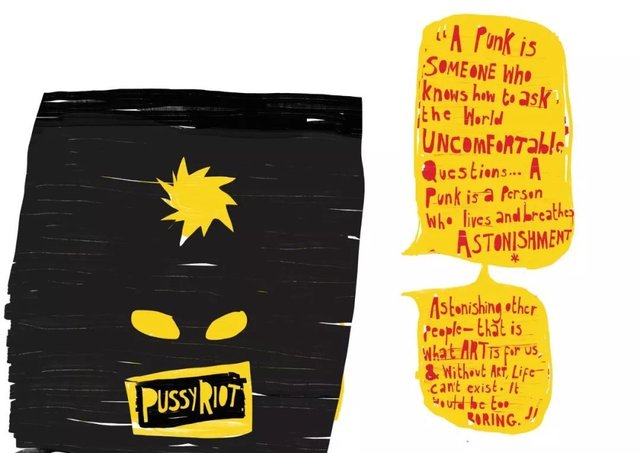 "A Punk is
SOMEONE Who
knows how to ask
the World
UNCOMFORTable
Questions... A
Punk is a Person
Who lives and breathes
ASTONISHMENT
*
Astonishing other
People— that is
what ART is for us,
& Without ART, Life
can't exist. It
would be too
BORING."
PUSSY RIOT